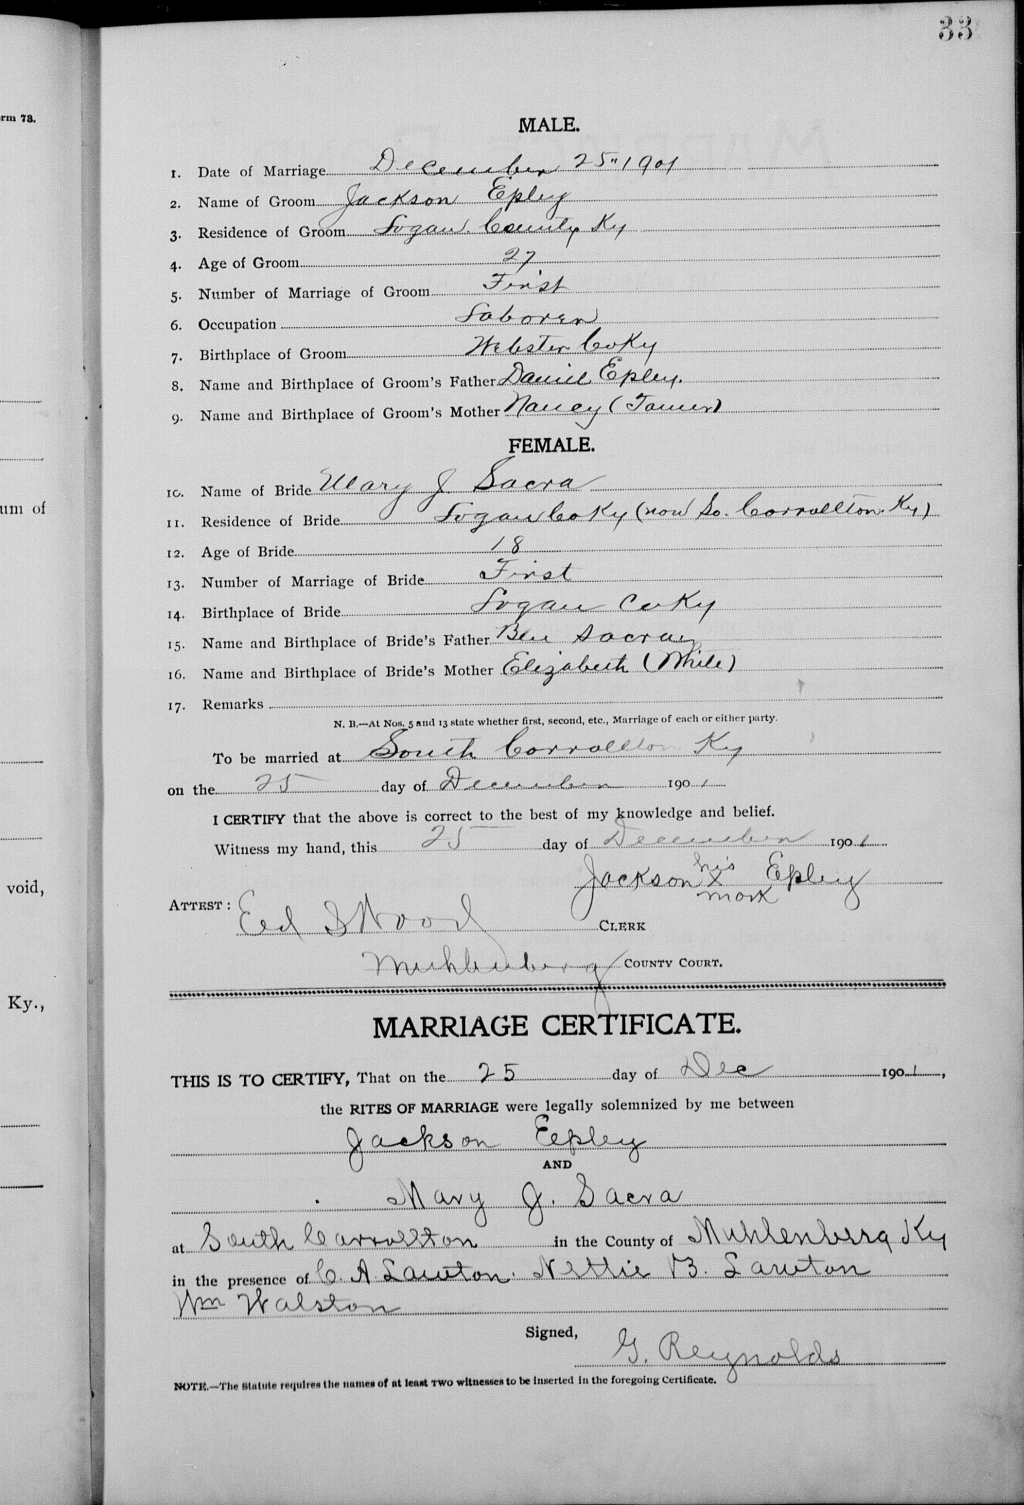 33
rm 73.
MALE.
1. Date of Marriage December 25" 1901
2. Name of Groom Jackson Epley
3. Residence of Groom Logan County Ky
4. Age of Groom 27
5. Number of Marriage of Groom First
6. Occupation Laborer
7. Birthplace of Groom Webster Co Ky
8. Name and Birthplace of Groom's Father Daniel Epley.
9. Name and Birthplace of Groom's Mother Nancy
FEMALE.
10. Name of Bride Mary J Sacra
um of
11. Residence of Bride Logan Co Ky (now So. Carrollton Ky)
12. Age of Bride 18
13. Number of Marriage of Bride First
14. Birthplace of Bride Logan Co Ky
15. Name and Birthplace of Bride's Father Ben Sacray
16. Name and Birthplace of Bride's Mother Elizabeth
17. Remarks
N. B.—At Nos. 5 and 13 state whether first, second, etc., Marriage of each or either party.
To be married at South Carrollton Ky
on the 25 day of December 1901
I CERTIFY that the above is correct to the best of my knowledge and belief.
Witness my hand, this 25 day of December 1901
void,
Jackson his X mark Epley
ATTEST: Ed S Wood CLERK
Muhlenberg COUNTY COURT.
Ky.,
MARRIAGE CERTIFICATE.
THIS IS TO CERTIFY, That on the 25 day of Dec 1901,
the RITES OF MARRIAGE were legally solemnized by me between
Jackson Epley
AND
Mary J. Sacra
at South Carrollton in the County of Muhlenberg Ky
in the presence of C. A. Lawton. Nettie B. Lawton
Wm Walston
Signed,
G. Reynolds
NOTE.—The Statute requires the names of at least TWO witnesses to be inserted in the foregoing Certificate.